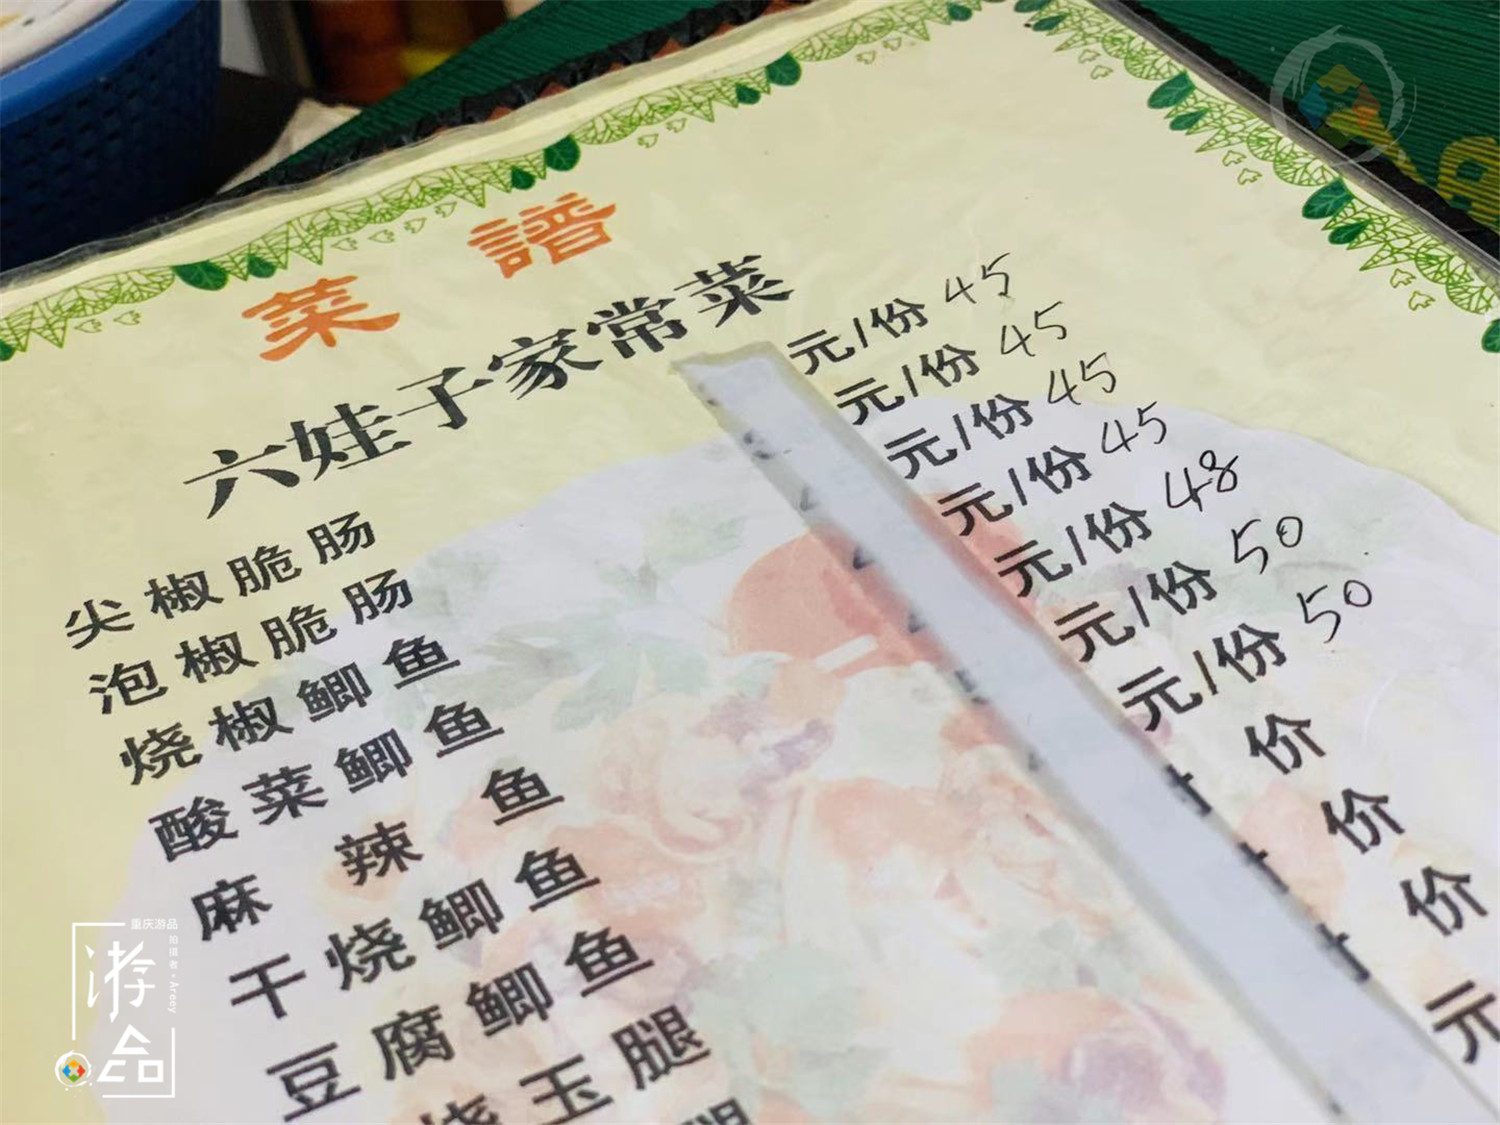 菜譜
六娃子家常菜
尖椒脆肠 元/份 45
泡椒脆肠 元/份 45
烧椒鲫鱼 元/份 45
酸菜鲫鱼 元/份 45
麻辣鱼 元/份 48
干烧鲫鱼 元/份 50
豆腐鲫鱼 元/份 50
烧玉腿 价
腿 价
价
元
重庆游品
拍摄者·Areey
游品